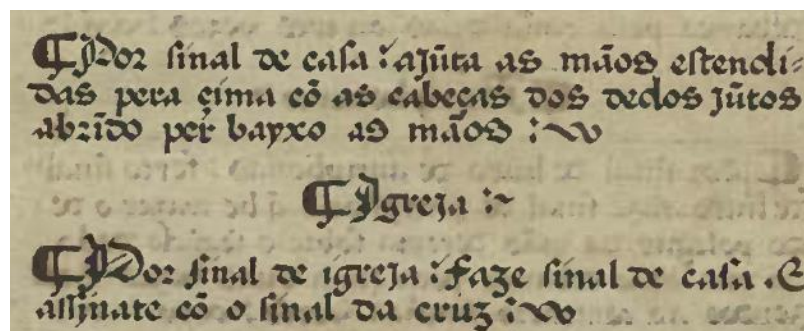 ¶ Por sinal de casa : ajũta as mãos estendi=
das pera çima cõ as cabeças dos dedos jũtos
abrĩdo per bayxo as mãos :~
¶ Igreja :~
¶ Por sinal de igreja : faze sinal de casa . E
assinate cõ o sinal da cruz :~